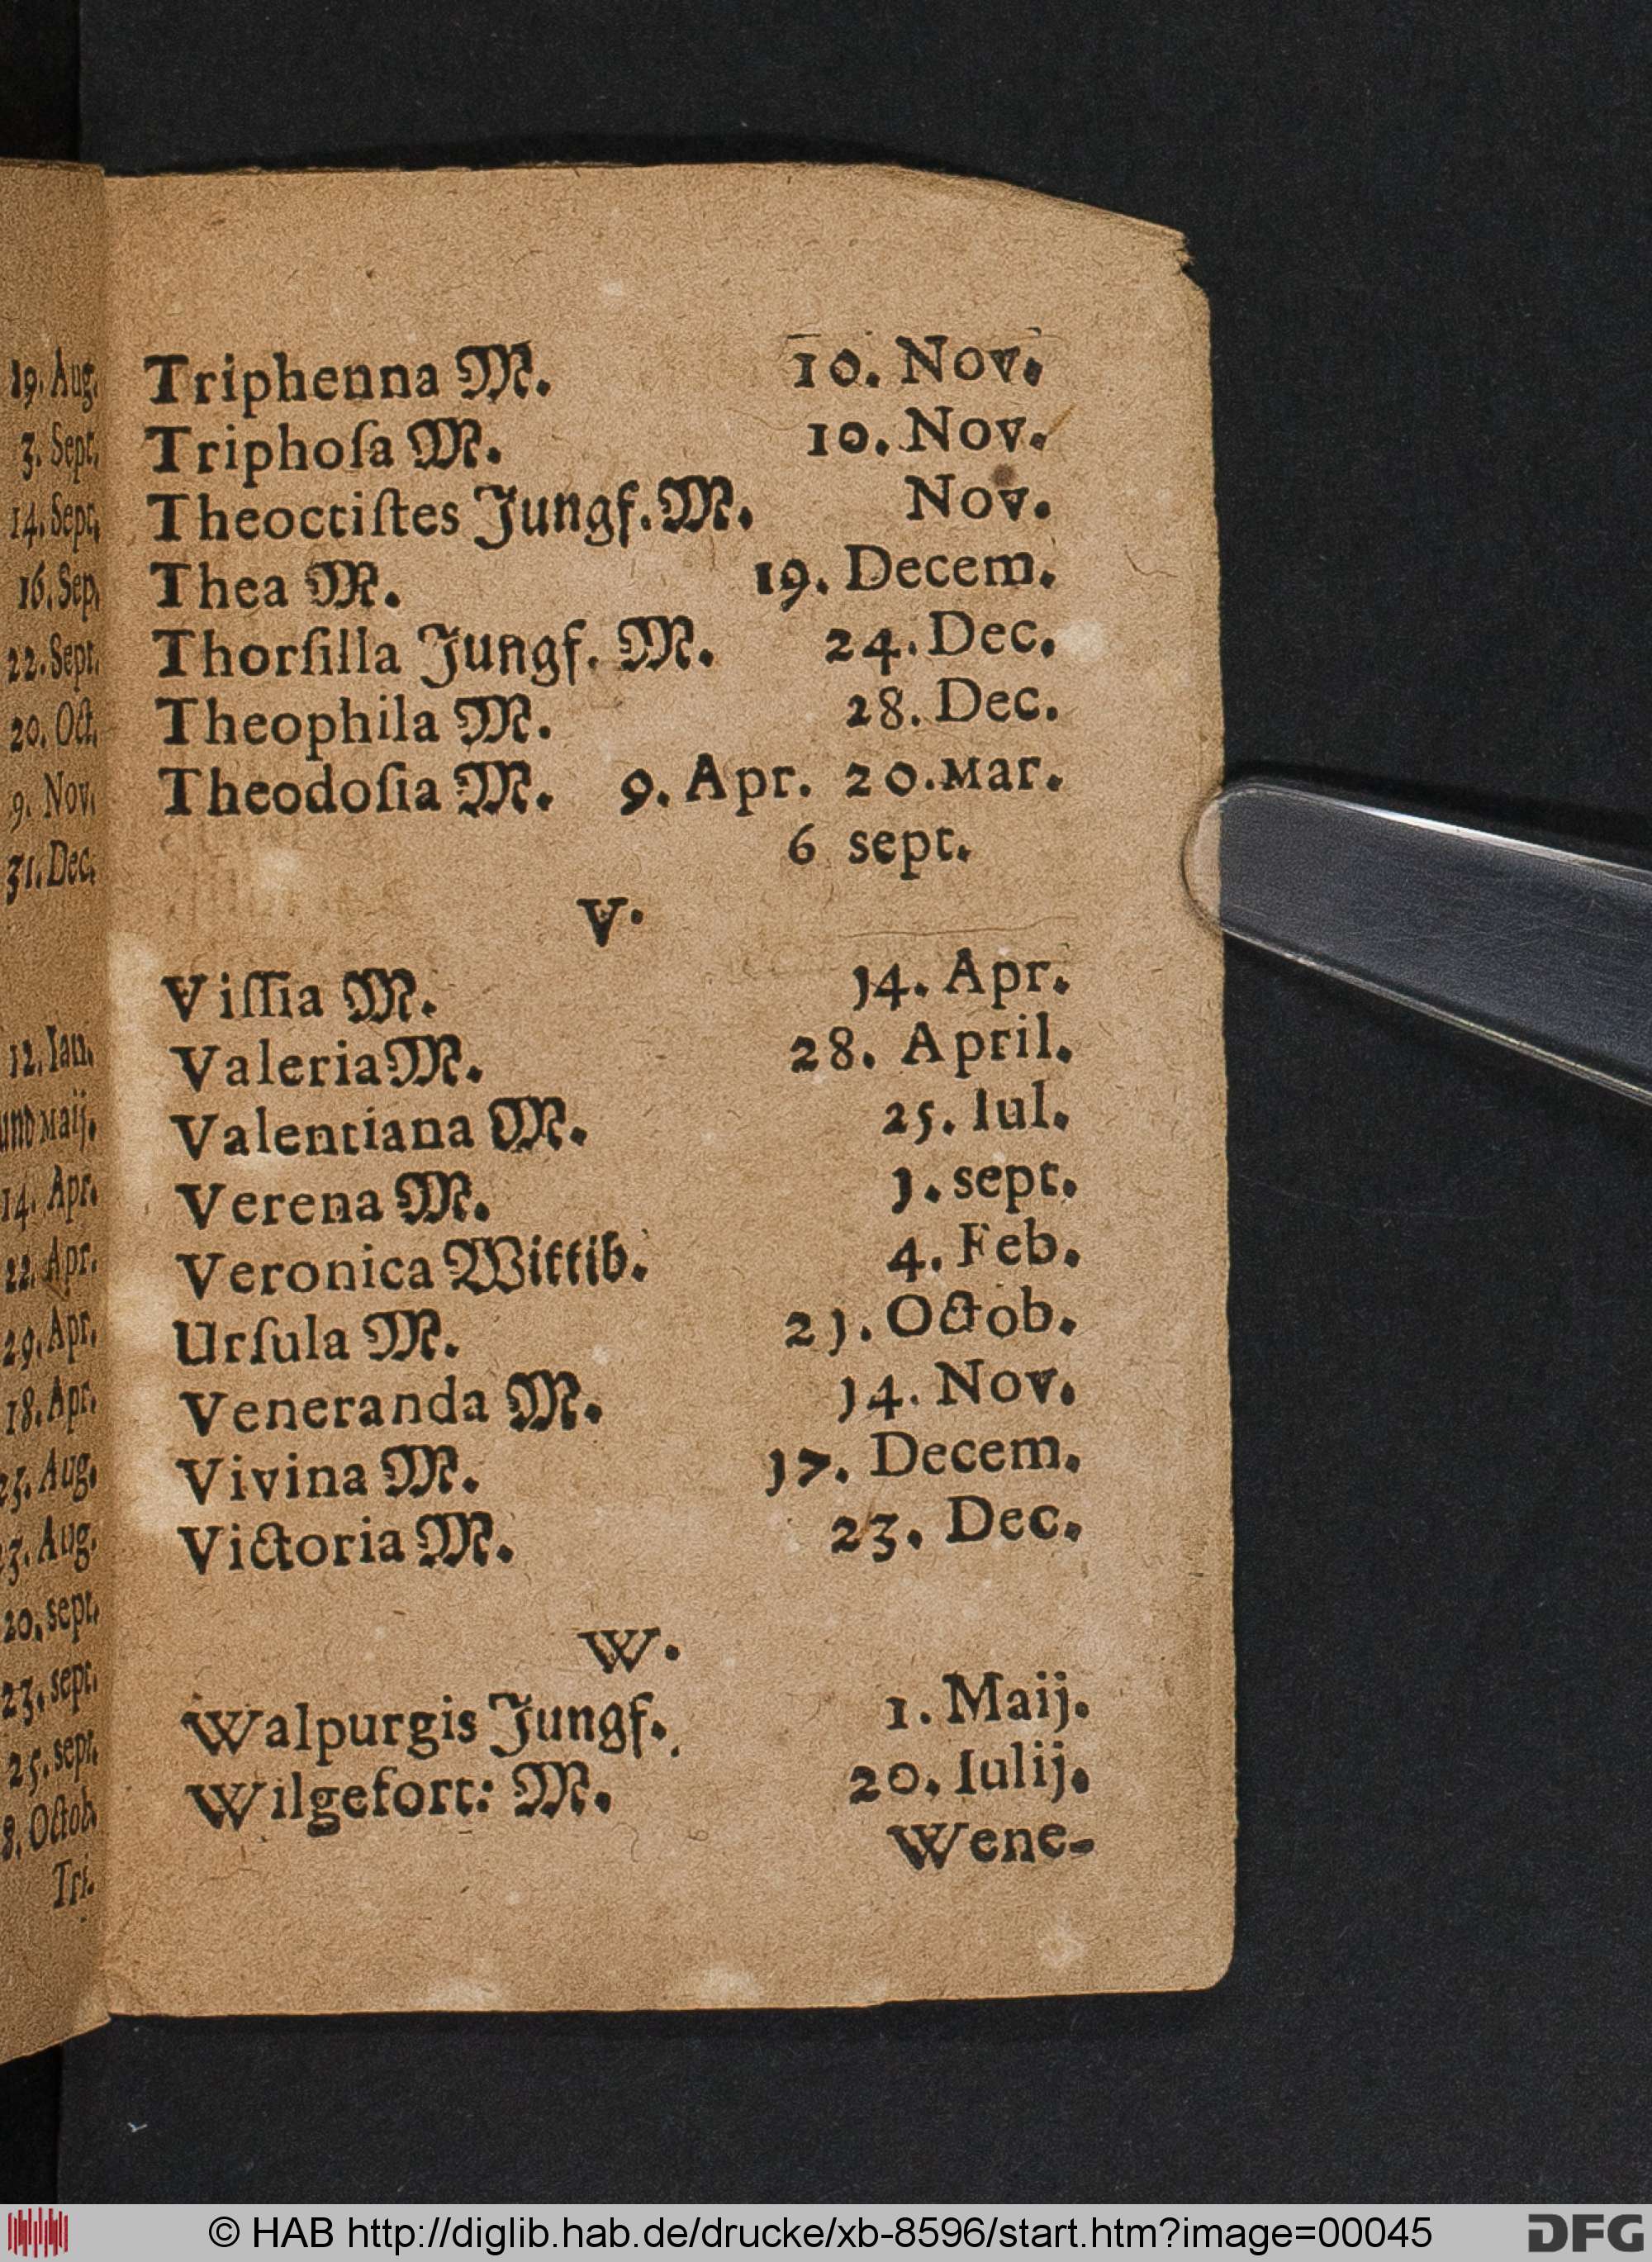 19. Aug.
3. Sept.
14. Sept.
16. Sep.
22. Sept.
20. Oct.
9. Nov.
31. Dec.
12. Ian.
und Maij.
14. Apr.
22. Apr.
29. Apr.
18. Apr.
25. Aug.
23. Aug.
20. sept.
23. sept.
25. sept.
8. Octob.
Tri.
Triphenna M. 10. Nov.
Triphoſa M. 10. Nov.
Theoctiſtes Jungf. M. Nov.
Thea M. 19. Decem.
Thorſilla Jungf. M. 24. Dec.
Theophila M. 28. Dec.
Theodoſia M. 9. Apr. 20. Mar.
6 sept.
V.
Viſſia M. 14. Apr.
Valeria M. 28. April.
Valentiana M. 25. Iul.
Verena M. 1. sept.
Veronica Wittib. 4. Feb.
Urſula M. 21. Octob.
Veneranda M. 14. Nov.
Vivina M. 17. Decem.
Victoria M. 23. Dec.
W.
Walpurgis Jungf. 1. Maij.
Wilgefort: M. 20. Iulij.
Wene-
© HAB http://diglib.hab.de/drucke/xb-8596/start.htm?image=00045
DFG